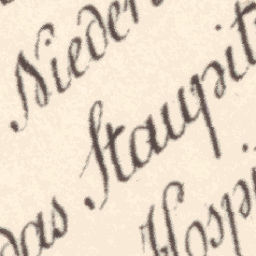 Nieder
das Staupit
Hospi